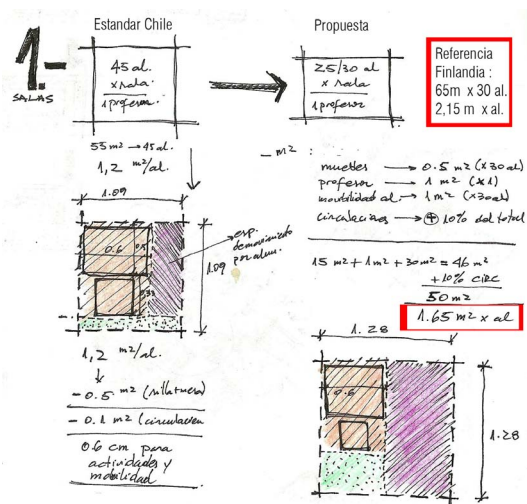 1.-
SALAS
Estandar Chile
45 al.
x sala
1 profesor.
55 m2 → 45 al.
1,2 m²/al.
1.09
0.6
0.5
0.33
1.09
esp.
de movimiento
por alum.
1,2 m²/al.
- 0.5 m² (silla+mesa)
- 0.1 m² (circulacion
0.6 cm para
actividades y
mobilidad
Propuesta
25/30 al
x sala
1 profesor
Referencia
Finlandia :
65m x 30 al.
2,15 m x al.
- m² :
muebles → 0.5 m² (x30al)
profesor → 1 m² (x1)
movilidad al. → 1 m² (x30al)
circulaciones → + 10% del total
15 m² + 1m² + 30m² = 46 m²
+10% CIRC
50 m2
1.65 m² x al
1.28
0.6
1.28